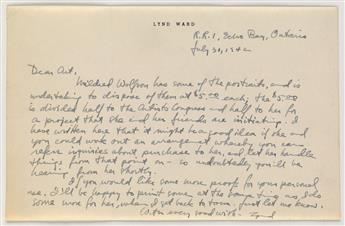 LYND WARD
R.R.1, Echo Bay, Ontario
July 30, 1942
Dear Art.
Mildred Wolfson has some of the portraits, and is
undertaking to dispose of them at $5.00 each; the $5.00
is divided half to the Artists Congress and half to her for
a project that she and her friends are initiating. I
have written her that it might be a good idea if she and
you could work out an arrangement whereby you can
refer inquiries about purchase to her, and let her handle
things from that point on — so undoubtedly, you'll be
hearing from her shortly.
If you would like some more proofs for your personal
use, I'll be happy to print some at the same time as I do
some more for her, when I get back to town. Just let me know.
With every good wish — Lynd